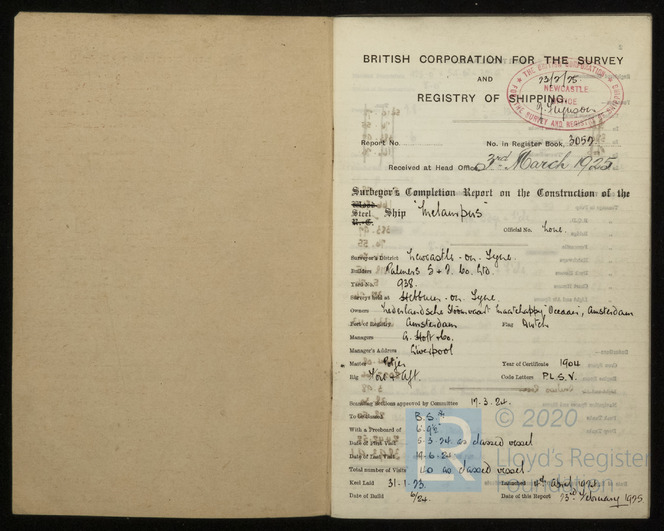 BRITISH CORPORATION FOR THE SURVEY
AND
REGISTRY OF SHIPPING.
THE BRITISH CORPORATION
23/2/25.
NEWCASTLE
SURVEY AND REGISTRY OF
Report No. No. in Register Book, 3057
Received at Head Office 3rd March 1925
Surveyor's Completion Report on the Construction of the
Wood
Steel Ship "Melampus"
Official No. None.
Surveyor's District Newcastle-on-Tyne.
Builders Palmers S & I. Co. Ltd.
Yard No. 938.
Surveys held at Hebburn-on-Tyne.
Owners Nederlandsche Stoomvaart Maatschappy "Oceaan", Amsterdam
Port of Registry Amsterdam Flag Dutch
Managers A. Holt & Co.
Manager's Address Liverpool
Master Year of Certificate 1904
Rig Fore & Aft Code Letters P.L.S.V.
Scantling Sections approved by Committee 19.3.24.
To be classed B.S.*
With a Freeboard of
Date of First Visit 5.3.24. as classed vessel
Date of Last Visit 19.6.24
Total number of Visits 40 as classed vessel.
Keel Laid 31.1.23. Launched April 1924.
Date of Build 6/24. Date of this Report 23rd February 1925
© 2020
Lloyd's Register
Foundation